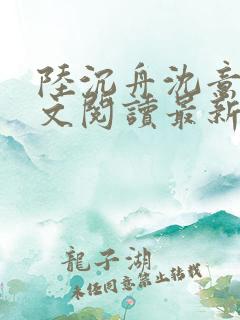 陸沉舟沈意
文閱讀最新
龍子湖
未經同意禁止轉載